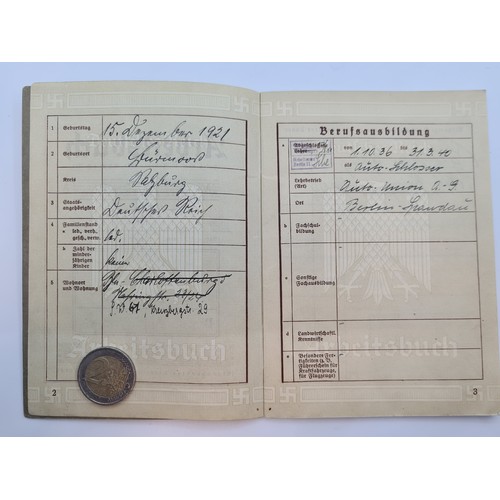 1 Geburtstag 15. Dezember 1921
2 Geburtsort
Kreis
3 Staats-
angehörigkeit Deutsches Reich
4 Familienstand
a led., verh.,
gesch., verw. led.
b Zahl der
minder-
jährigen
Kinder keine
5 Wohnort
und Wohnung Bln.- Charlottenburg
29
Arbeitsbuch
2
Berufsausbildung
a Abgeschlossene
Lehre von 1.10.36 bis 31.3.40
als Auto-Schlosser
Lehrbetrieb
(Art) Auto-Union A.-G.
Ort Berlin-Spandau
b Fachschul-
bildung
c Sonstige
Fachausbildung
d Landwirtschaftl.
Kenntnisse
e Besondere Fer-
tigkeiten (z. B.
Führerschein für
Kraftfahrzeuge,
für Flugzeuge)
Arbeitsbuch
3